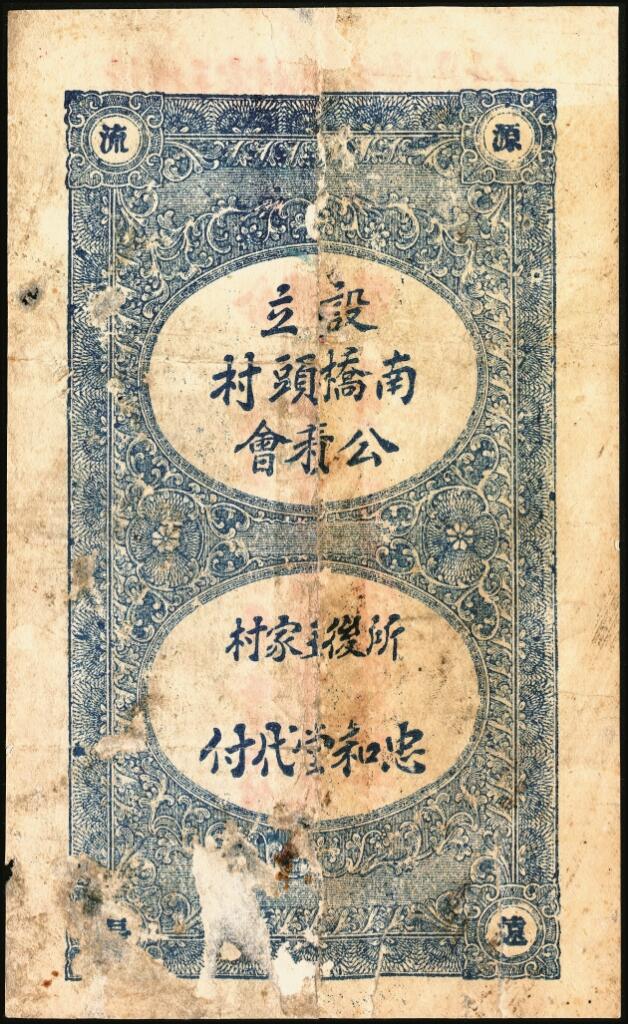 源 流
設立
南橋頭村
公會
所後家村
忠和堂代付
遠